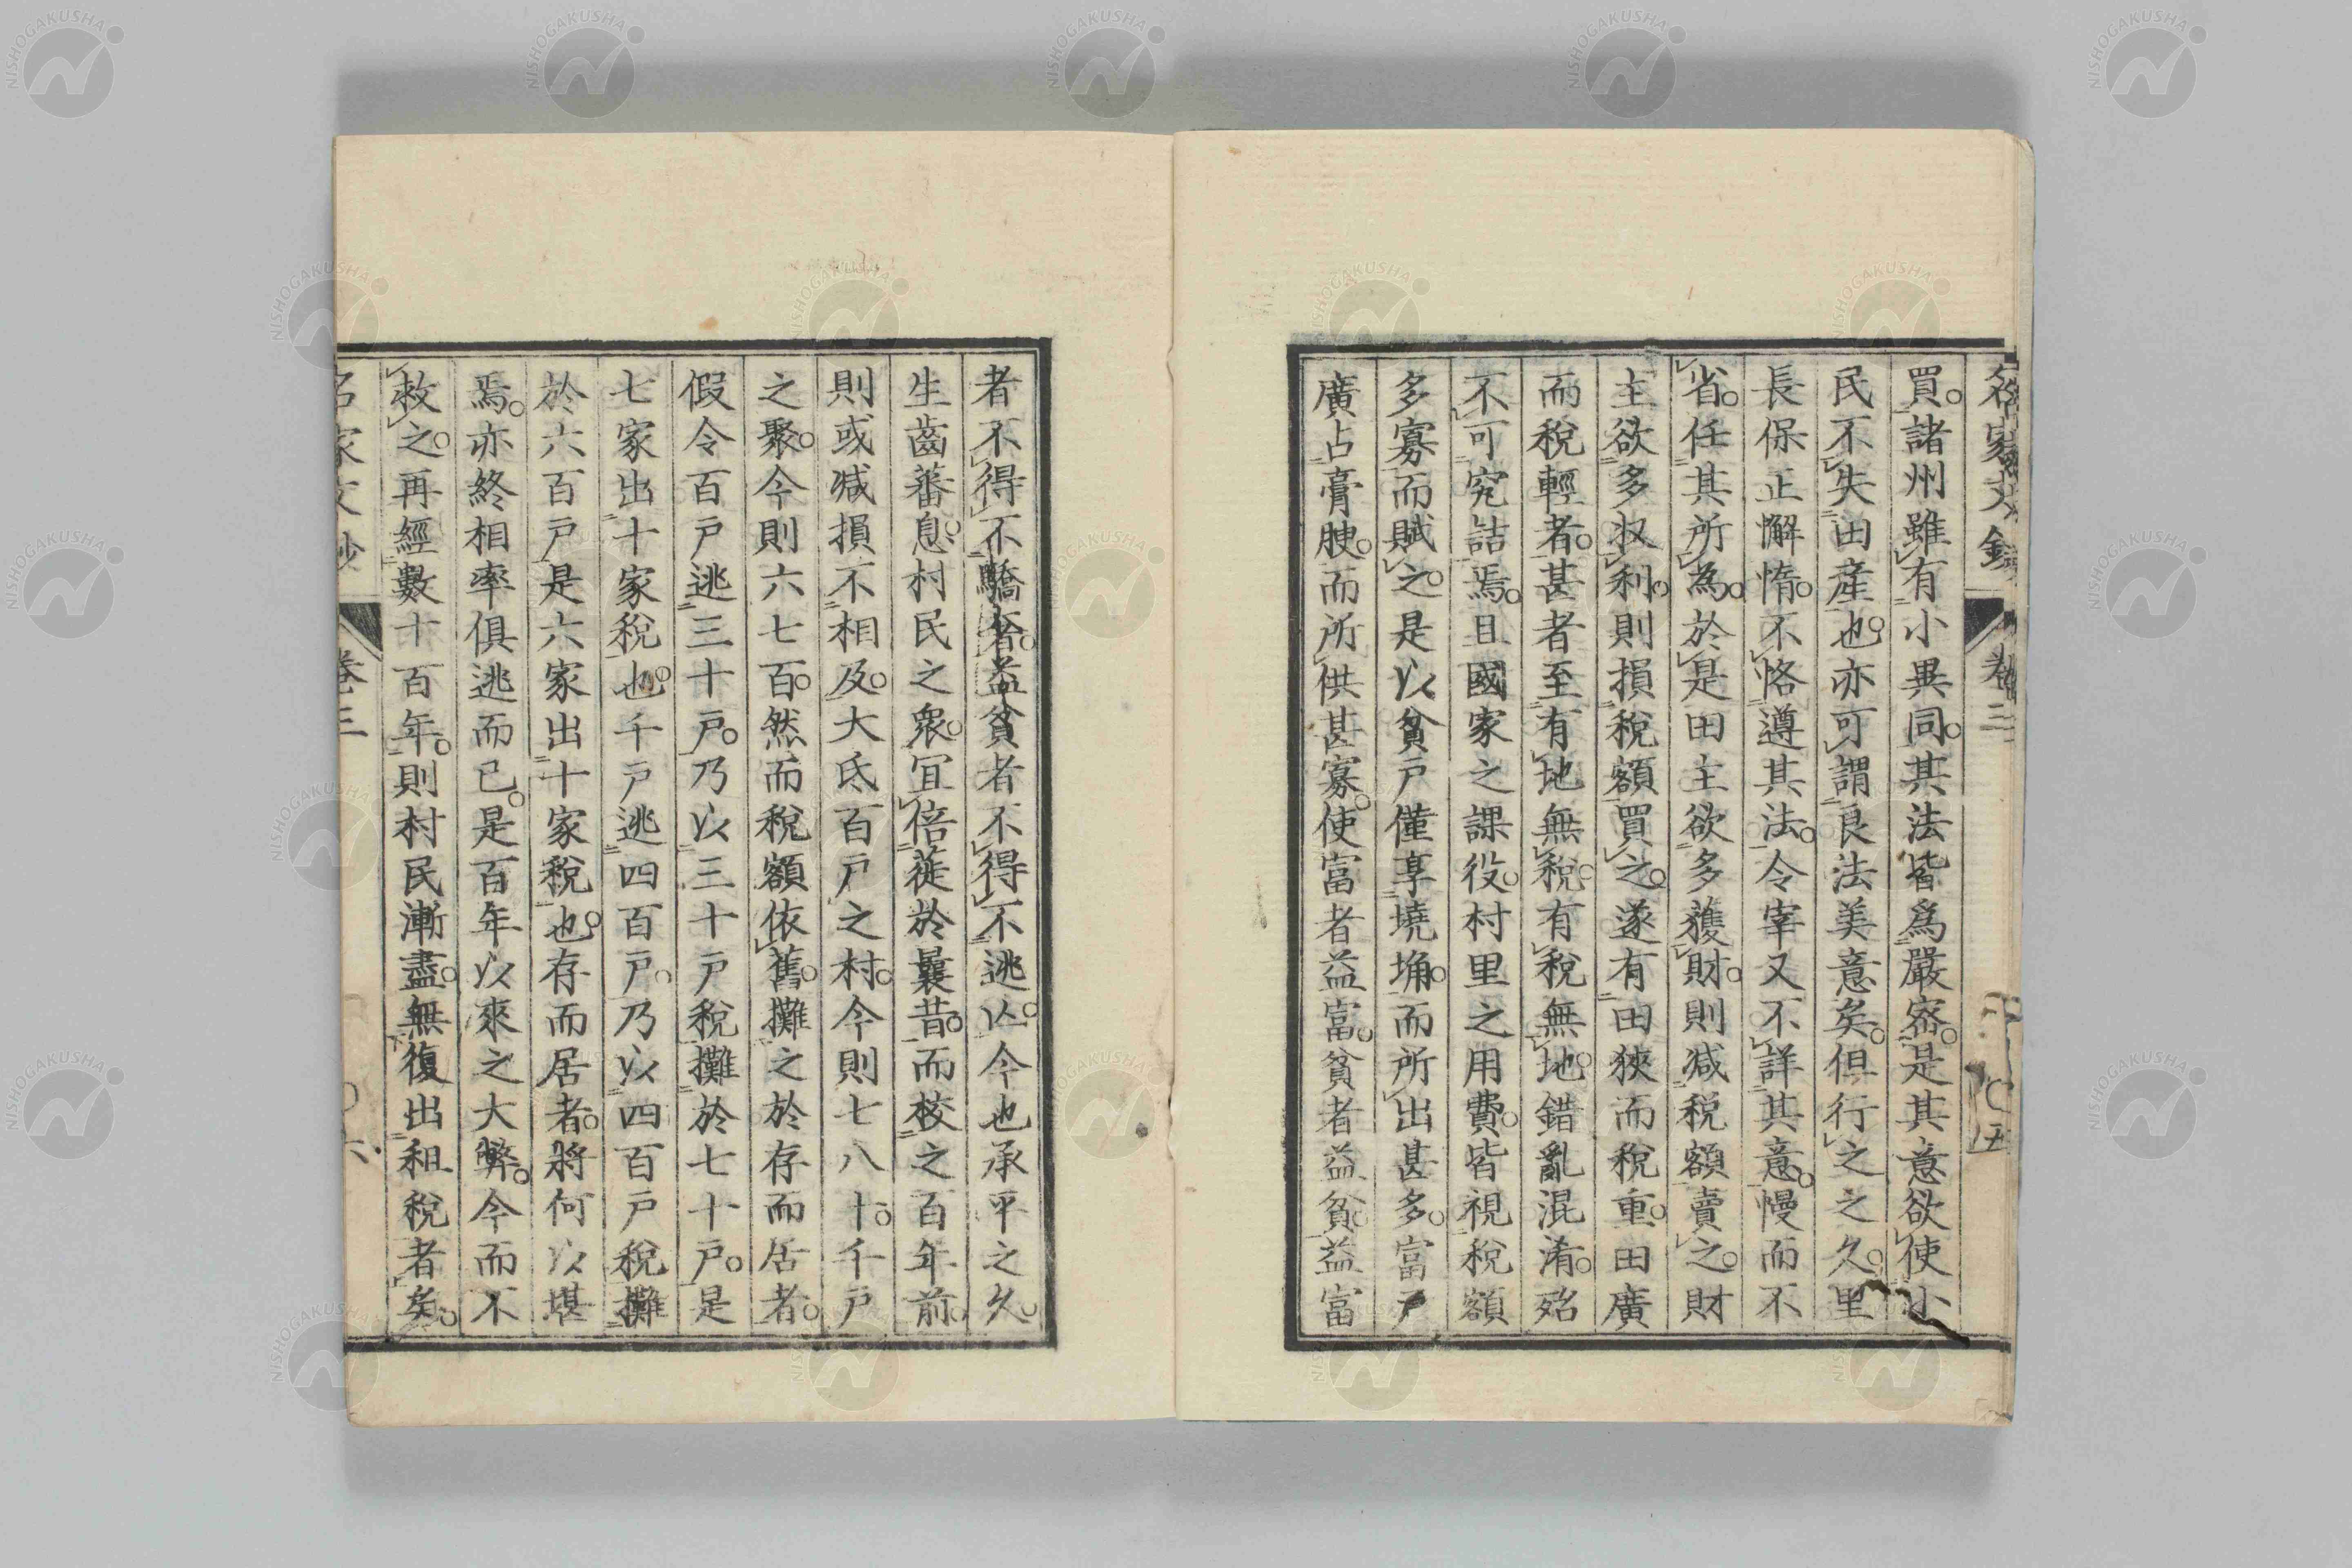 名家文鈔 卷三 五
買諸州雖有小異同其法皆爲嚴密是其意欲使小
民不失田產也亦可謂良法美意矣但行之之久里
長保正懈惰不恪遵其法令宰又不詳其意慢而不
省任其所為於是田主欲多獲財則減税額賣之財
主欲多収利則損税額買之遂有田狹而税重田廣
而税輕者甚者至有地無税有税無地錯亂混淆殆
不可究詰焉且國家之課役村里之用費皆視税額
多寡而賦之是以貧戸僅享墝埆而所出甚多富戸
廣占膏腴而所供甚寡使富者益富貧者益貧益富
者不得不驕奢益貧者不得不逃亾今也承平之久
生齒蕃息村民之衆宜倍蓰於曩昔而校之百年前
則或減損不相及大氐百戸之村今則七八十千戸
之聚今則六七百然而税額依舊攤之於存而居者
假令百戸逃三十戸乃以三十戸税攤於七十戸是
七家出十家税也千戸逃四百戸乃以四百戸税攤
於六百戸是六家出十家税也存而居者將何以堪
焉亦終相率俱逃而已是百年以來之大弊今而不
救之再經數十百年則村民漸盡無復出租税者矣
名家文鈔 卷三 六
NISHOGAKUSHA